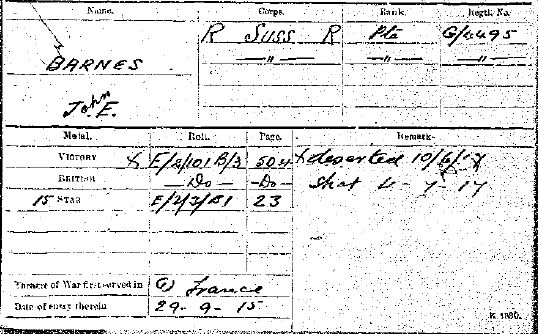 Name. Corps. Rank. Regtl. No.
BARNES R Suss R Pte G/4495
John E. —"— —"— —"—
Medal. Roll. Page. Remarks.
VICTORY X E/2/101 B/3 504 X deserted 10/6/17
BRITISH —Do— —Do— Shot 4-7-17
15 STAR E/2/3/B1 23
Theatre of War first served in (1) France
Date of entry therein 29-9-15
K. 1380.